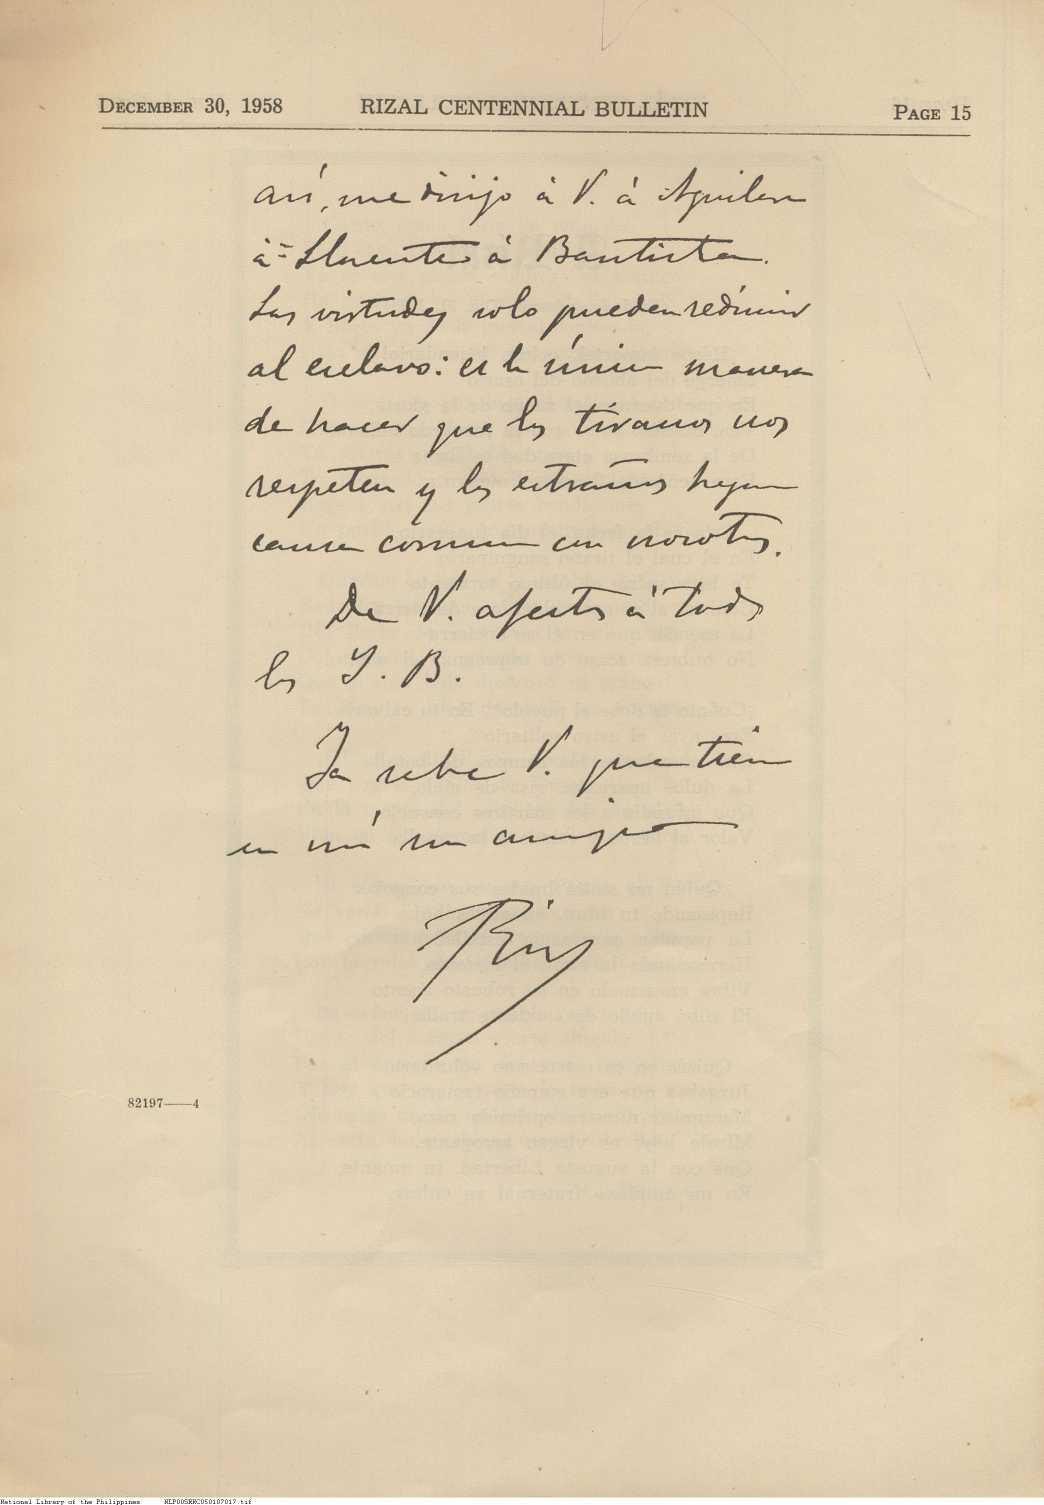 DECEMBER 30, 1958 RIZAL CENTENNIAL BULLETIN PAGE 15
así, me dirijo à V. à Aguilera
à Llorente à Bautista.
Las virtudes solo pueden redimir
al esclavo: es la única manera
de hacer que los tiranos nos
respeten y los estraños hagan
causa comun con nosotros.
De V. afecto à todos
los I. B.
Ya sabe V. que tiene
en mí un amigo
Rizal
82197—4
National Library of the Philippines NLP00SRRC050107017.tif